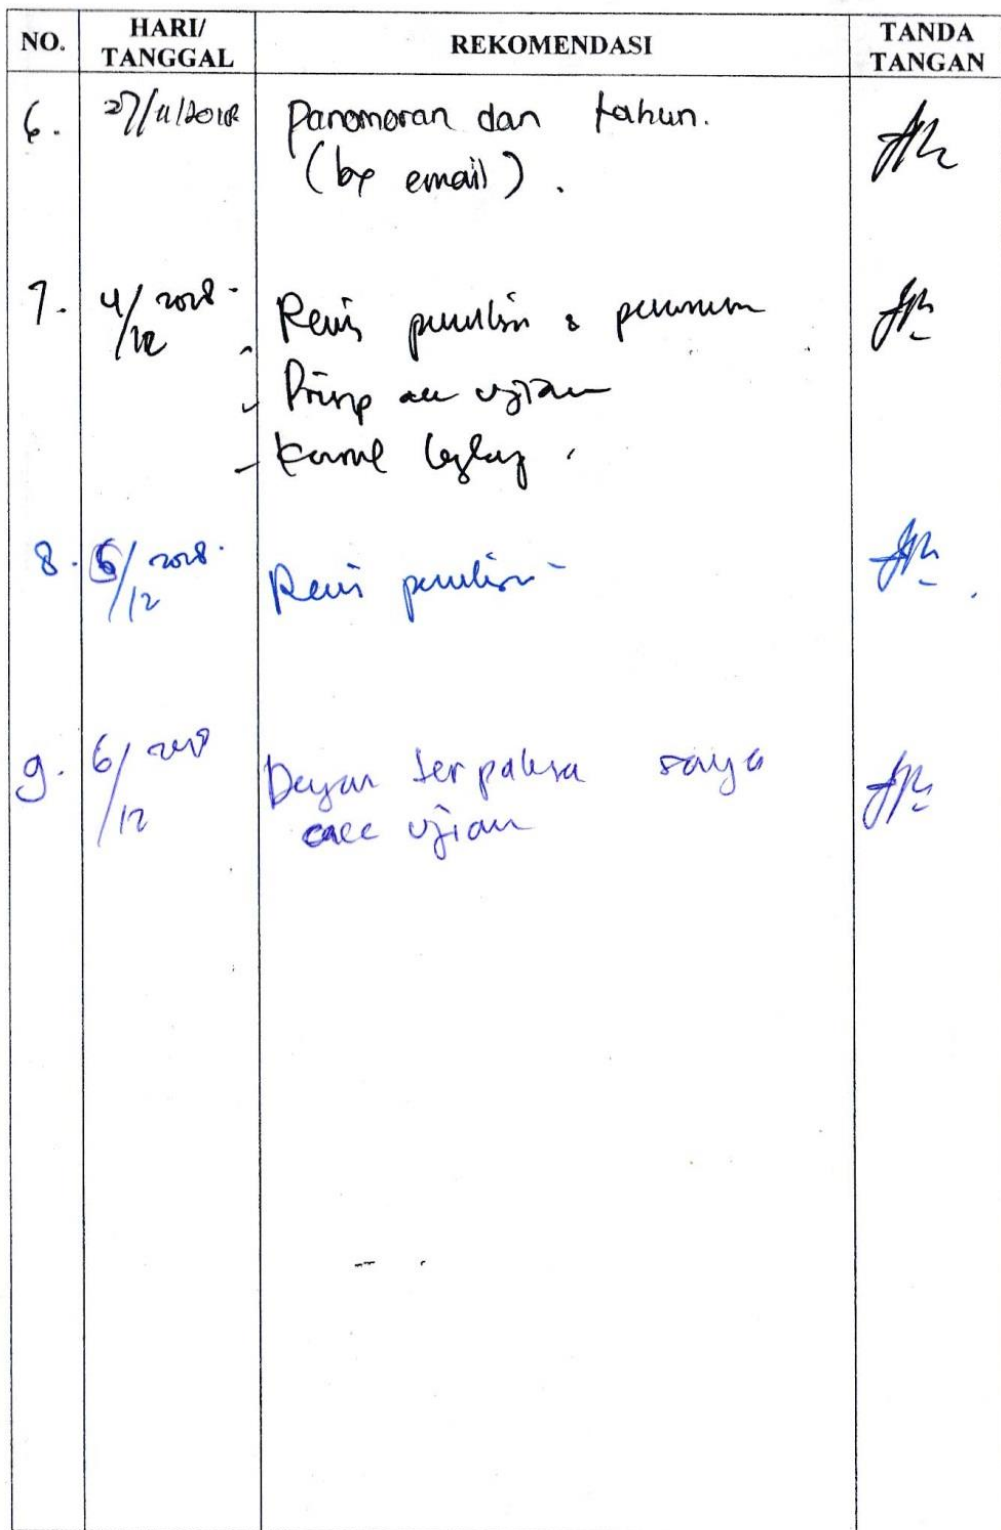 NO. HARI/ TANGGAL REKOMENDASI TANDA TANGAN
6. 27/11/2018 Panomoran dan tahun.
(by email).
7. 4/12 2018.
Revisi penulisan &
Prinsip acc ujian
8. 6/12 2018.
Revisi penulisan
9. 6/12 2018 Dengan terpaksa saya
acc ujian